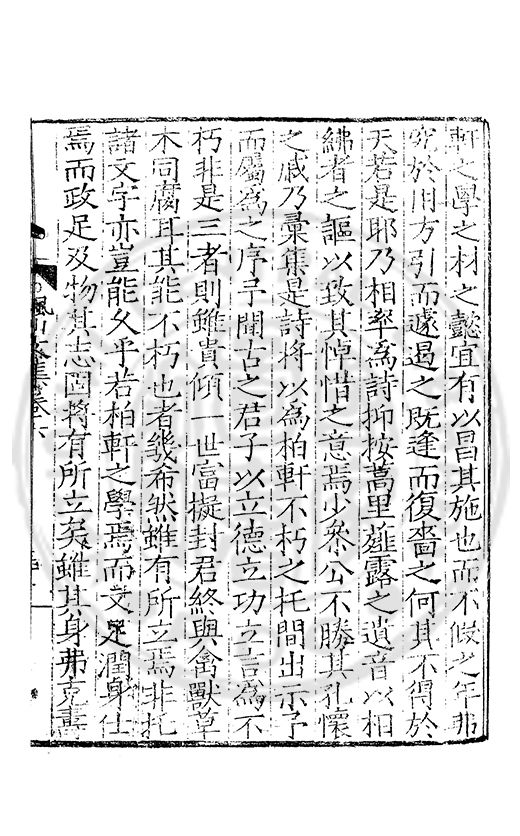 軒之學之材之懿宜有以昌其施也而不假之年弗
究於用方引而遽遏之既逢而復嗇之何其不得於
天若是耶乃相率爲詩抑按蒿里薤露之遺音以相
紼者之謳以致其悼惜之意焉少叅公不勝其孔懷
之戚乃彙集是詩將以爲柏軒不朽之托間出示予
而屬爲之序予聞古之君子以立德立功立言爲不
朽非是三者則雖貴傾一世富擬封君終與禽獸草
木同腐耳其能不朽也者幾希然雖有所立焉非托
諸文字亦豈能乆乎若柏軒之學焉而文足潤身仕
焉而政足及物其志固將有所立矣雖其身弗克壽
楓山文集卷六